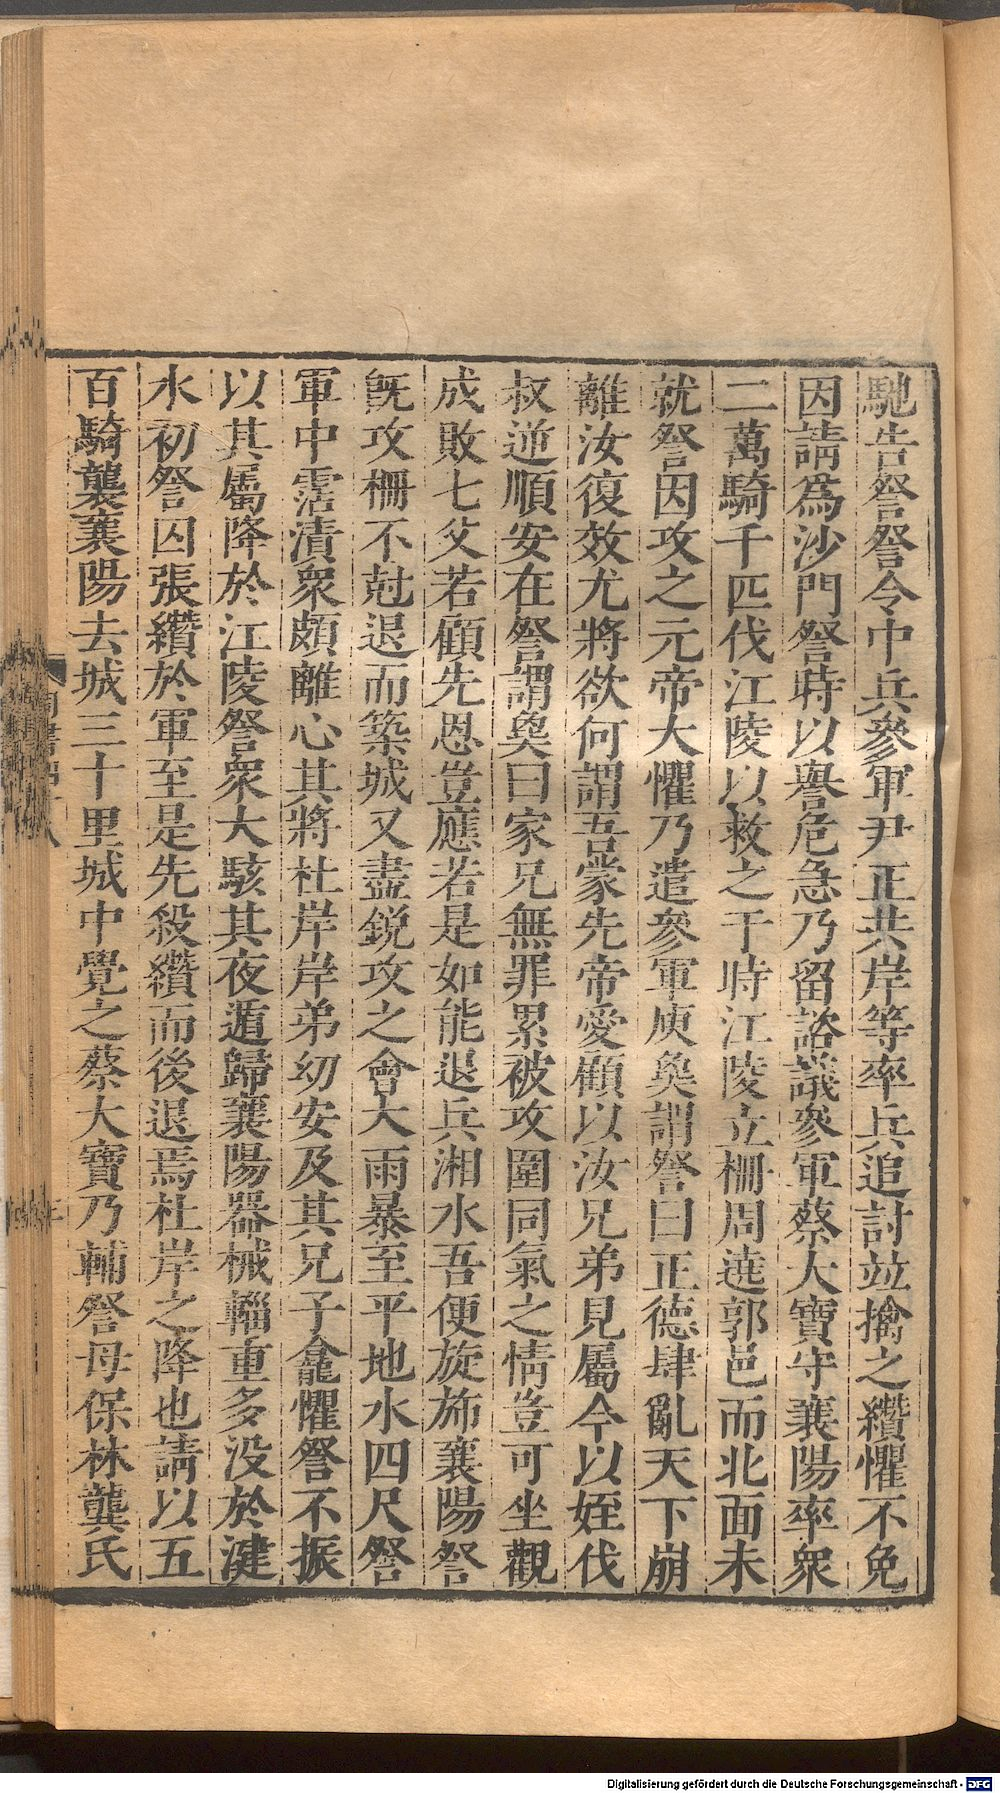 馳告詧詧令中兵參軍尹正共岸等率兵追討竝擒之纘懼不免
因請爲沙門詧時以譽危急乃留諮議參軍蔡大寶守襄陽率衆
二萬騎千匹伐江陵以救之于時江陵立柵周遶郭邑而北面未
就詧因攻之元帝大懼乃遣參軍庾奐謂詧曰正德肆亂天下崩
離汝復效尤將欲何謂吾蒙先帝愛顧以汝兄弟見屬今以姪伐
叔逆順安在詧謂奐曰家兄無罪累被攻圍同氣之情豈可坐觀
成敗七父若顧先恩豈應若是如能退兵湘水吾便旋斾襄陽詧
旣攻柵不尅退而築城又盡銳攻之會大雨暴至平地水四尺詧
軍中霑漬衆頗離心其將杜岸岸弟幼安及其兄子龕懼詧不振
以其屬降於江陵詧衆大駭其夜遁歸襄陽器械輜重多没於湕
水初詧囚張纘於軍至是先殺纘而後退焉杜岸之降也請以五
百騎襲襄陽去城三十里城中覺之蔡大寶乃輔詧母保林龔氏
Digitalisierung gefördert durch die Deutsche Forschungsgemeinschaft - DFG